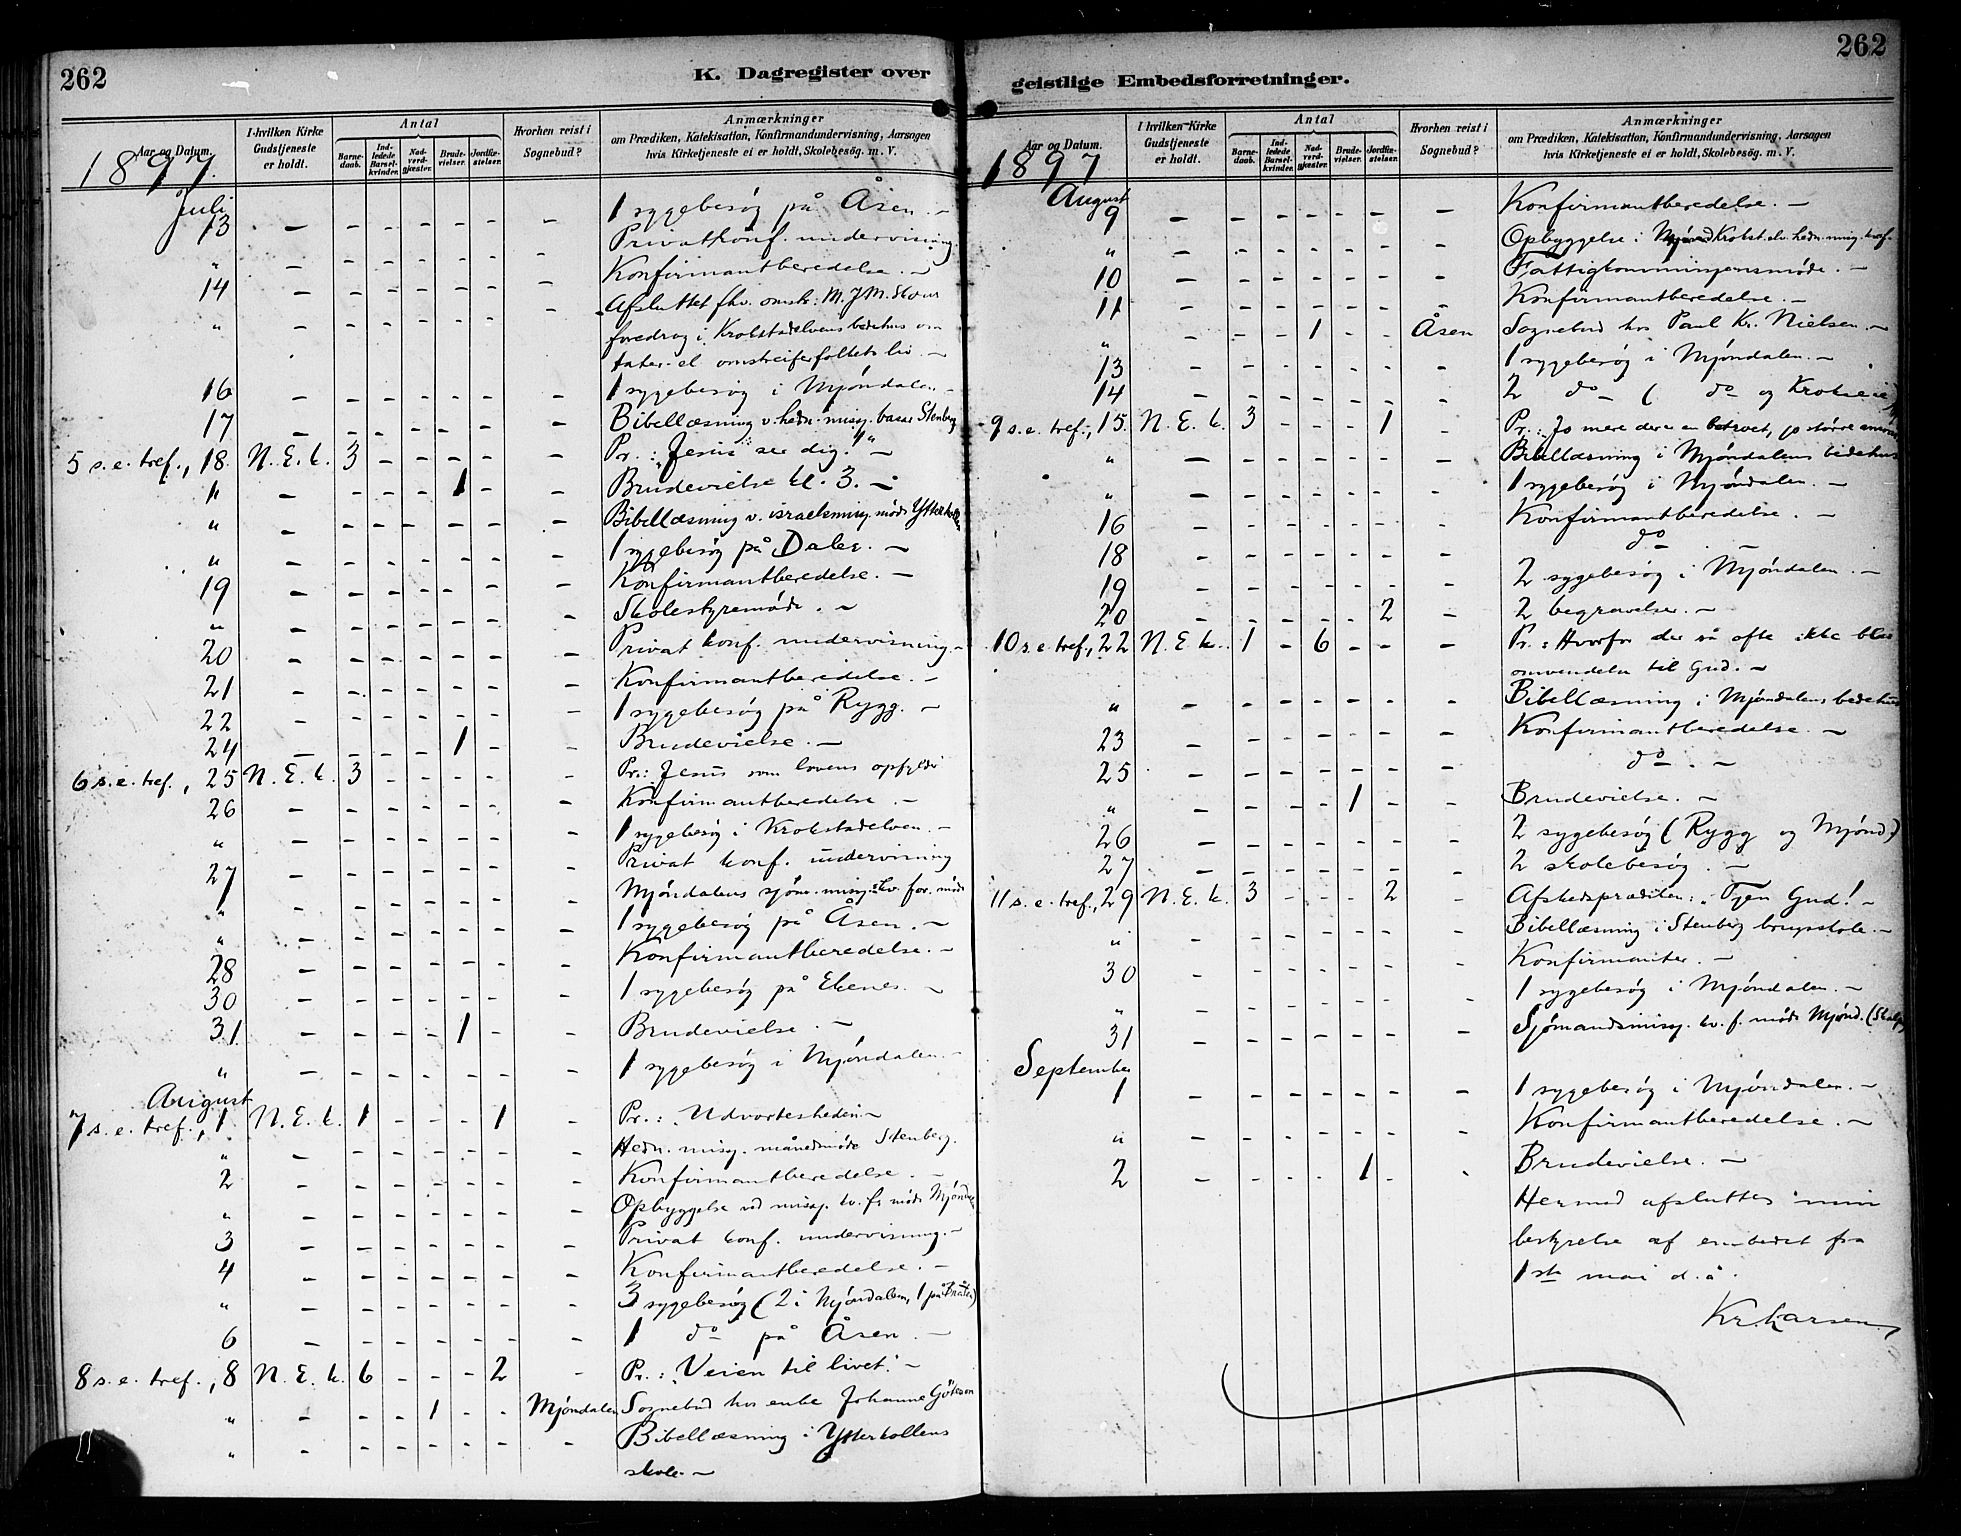 262
K. Dagregister over
Aar og Datum.
I hvilken Kirke Gudstjeneste er holdt.
Antal
Barnedaab.
Indledede Barselkvinder.
Nadverdgjæster.
Brudevielser.
Jordfæstelser.
Hvorhen reist i Sognebud?
Anmærkninger
om Prædiken, Katekisation, Konfirmandundervisning, Aarsagen
hvis Kirketjeneste ei er holdt, Skolebesög. m. V.
1897.
Juli
13 – – – – – – – 1 sygebesøg på Åsen. –
" – – – – – – – Privat konf. undervisning.
14 – – – – – – – Konfirmantberedelse. –
" – – – – – – – Afsluttet M. J. M.
foredrag i Krokstadelvens bedehus om
tater- el. omstreiferfolkets liv. –
16 – – – – – – – 1 sygebesøg i Mjøndalen. –
17 – – – – – – – Bibellæsning v. hedn. misj. basar Stenberg
5 s. e. tref., 18. N. E. k. 3 – – – – – Pr.: "Jesus ser dig!" –
" – – – – 1 – – Brudevielse kl. 3. –
" – – – – – – – Bibellæsning v. israelsmisj. møde Ytterkollen
" – – – – – – – 1 sygebesøg på Daler. –
19 – – – – – – – Konfirmantberedelse. –
" – – – – – – – Skolestyremøde. –
20 – – – – – – – Privat konf. undervisning. –
21 – – – – – – – Konfirmantberedelse. –
22 – – – – – – – 1 sygebesøg på Rygg. –
24 – – – – 1 – – Brudevielse. –
6 s. e. tref., 25 N. E. k. 3 – – – – – Pr.: Jesus som lovens opfylder
26 – – – – – – – Konfirmantberedelse. –
" – – – – – – – 1 sygebesøg i Krokstadelven. –
27 – – – – – – – Privat konf. undervisning
" – – – – – – – Mjøndalens sjøm. misj. kv. for. møde
" – – – – – – – 1 sygebesøg på Åsen. –
28 – – – – – – – Konfirmantberedelse. –
30 – – – – – – – 1 sygebesøg på Ekenes. –
31 – – – – 1 – – Brudevielse. –
" – – – – – – – 1 sygebesøg i Mjøndalen. –
August
7 s. e. tref., 1 N. E. k. 1 – – – 1 – Pr.: Udvortesheden –
" – – – – – – – Hedn. misj. månedmøde Stenberg.
2 – – – – – – – Konfirmantberedelse. –
" – – – – – – – Opbyggelse ved misj. kv. f. møde
3 – – – – – – – Privat konf. undervisning. –
4 – – – – – – – Konfirmantberedelse. –
" – – – – – – – 3 sygebesøg (2 i Mjøndalen, 1 på
6 – – – – – – – 1 do på Åsen. –
8 s. e. tref., 8 N. E. k. 6 – – – 2 – Pr.: "Veien til livet." –
" – – – 1 – – Mjøndalen Sognebud hos enke Johanne
" – – – – – – – Bibellæsning i Ytterkollens
skole. –
262
geistlige Embedsforretninger.
Aar og Datum.
I hvilken Kirke Gudstjeneste er holdt.
Antal
Barnedaab.
Indledede Barselkvinder.
Nadverdgjæster.
Brudevielser.
Jordfæstelser.
Hvorhen reist i Sognebud?
Anmærkninger
om Prædiken, Katekisation, Konfirmandundervisning, Aarsagen
hvis Kirketjeneste ei er holdt, Skolebesög. m. V.
1897
August
9 – – – – – – – Konfirmantberedelse. –
" – – – – – – – Opbyggelse i Krokst.elv. hedn. misj.
10 – – – – – – – Fattigkommisjonsmøde. –
11 – – – – – – – Konfirmantberedelse. –
" – – – 1 – – Åsen Sognebud hos Paul Kr. Nielsen. –
13 – – – – – – – 1 sygebesøg i Mjøndalen. –
14 – – – – – – – 2 do – ( do og
9 s. e. tref., 15. N. E. k. 3 – – – 1 – Pr.: Jo mere der er betroet, jo større
" – – – – – – – Bibellæsning i Mjøndalens bedehus
" – – – – – – – 1 sygebesøg i Mjøndalen. –
16 – – – – – – – Konfirmantberedelse. –
18 – – – – – – – do –
19 – – – – – – – 2 sygebesøg i Mjøndalen. –
20 – – – – – 2 – 2 begravelser. –
10 s. e. tref., 22 N. E. k. 1 – 6 – – – Pr.: Hvorfor der så ofte ikke blir
omvendelse til Gud. –
" – – – – – – – Bibellæsning i Mjøndalens bedehus
23 – – – – – – – Konfirmantberedelse. –
25 – – – – – – – do. –
" – – – – 1 – – Brudevielse. –
26 – – – – – – – 2 sygebesøg (Rygg og Mjønd.)
27 – – – – – – – 2 skolebesøg. –
11 s. e. tref., 29 N. E. k. 3 – – – 2 – Afskedsprædiken: "Tjen Gud! –
" – – – – – – – Bibellæsning i Stenberg brugsskole. –
30 – – – – – – – Konfirmanter. –
" – – – – – – – 1 sygebesøg i Mjøndalen. –
31 – – – – – – – Sjømandsmisj. kv. f. møde Mjønd.
September
1 – – – – – – – 1 sygebesøg i Mjøndalen. –
" – – – – – – – Konfirmantberedelse. –
2 – – – – 1 – – Brudevielse. –
Hermed afsluttes min
bestyrelse af embedet fra
1ste mai d. å.
Kr. Larsen